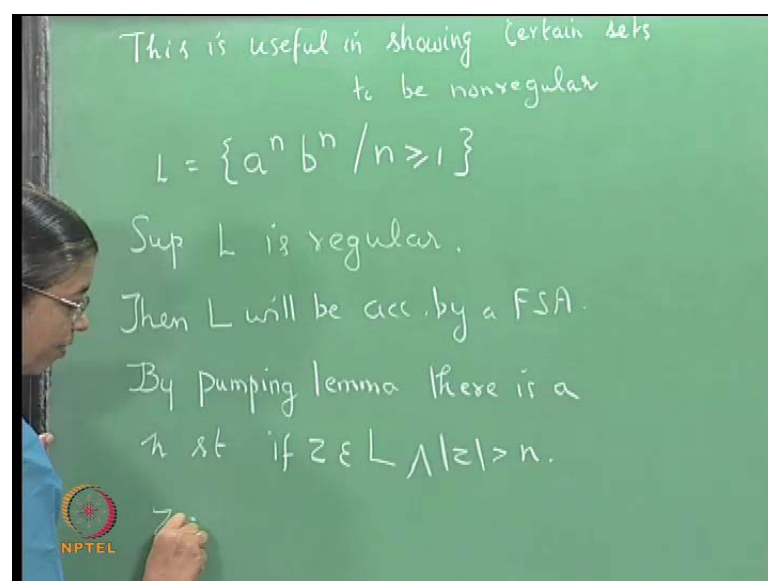 This is useful in showing certain sets
to be nonregular
L = {aⁿ bⁿ / n ≥ 1}
Sup L is regular.
Then L will be acc. by a FSA.
By pumping lemma there is a
n st if z ε L ∧ |z| > n.
z
NPTEL